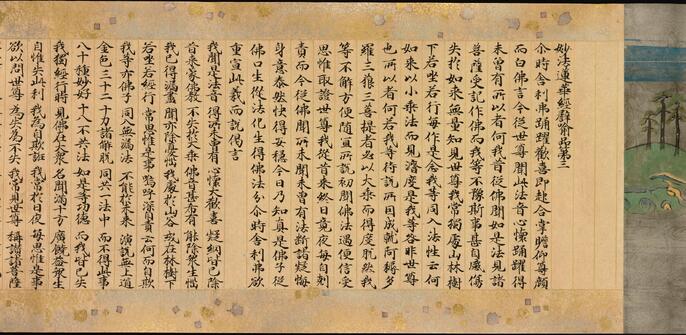 妙法蓮華經譬喻品第三
尒時舍利弗踊躍歡喜即起合掌瞻仰尊顏
而白佛言今從世尊聞此法音心懷踊躍得
未曾有所以者何我昔從佛聞如是法見諸
菩薩受記作佛而我等不豫斯事甚自感傷
失於如來無量知見世尊我常獨處山林樹
下若坐若行每作是念我等同入法性云何
如來以小乘法而見濟度是我等咎非世尊
也所以者何若我等待說所因成就阿耨多
羅三藐三菩提者必以大乘而得度脫然我
等不解方便隨宜所說初聞佛法遇便信受
思惟取證世尊我從昔來終日竟夜每自剋
責而今從佛聞所未聞未曾有法斷諸疑悔
身意泰然快得安穩今日乃知真是佛子從
佛口生從法化生得佛法分尒時舍利弗欲
重宣此義而說偈言
我聞是法音 得所未曾有 心懷大歡喜 疑網皆已除
昔來蒙佛教 不失於大乘 佛音甚希有 能除衆生惱
我已得漏盡 聞亦除憂惱 我處於山谷 或在林樹下
若坐若經行 常思惟是事 嗚呼深自責 云何而自欺
我等亦佛子 同入無漏法 不能於未來 演說無上道
金色三十二 十力諸解脫 同共一法中 而不得此事
八十種妙好 十八不共法 如是等功德 而我皆已失
我獨經行時 見佛在大衆 名聞滿十方 廣饒益衆生
自惟失此利 我為自欺誑 我常於日夜 每思惟是事
欲以問世尊 為失為不失 我常見世尊 稱讚諸菩薩